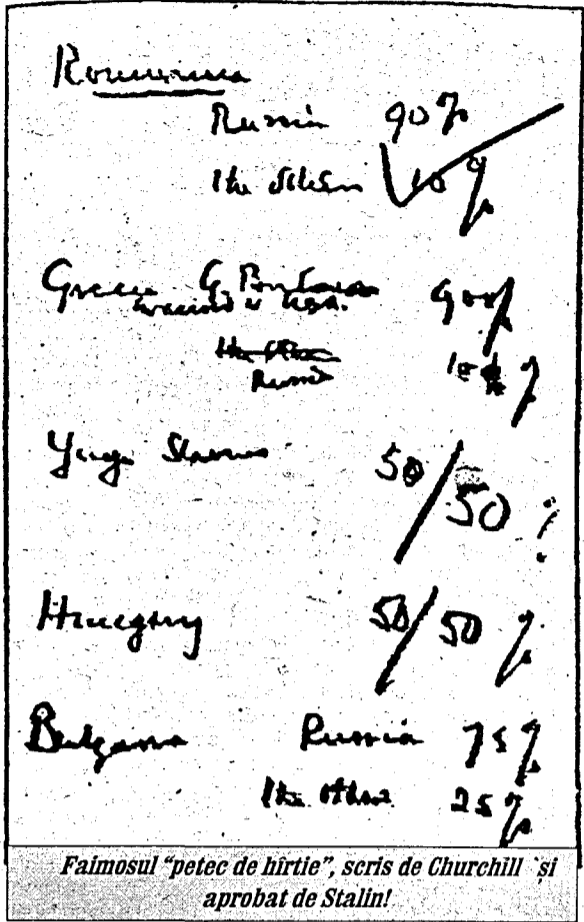 Roumania
Russia 90%
The others 10%
Greece G. Britain 90%
in accord w USA.
The Others
Russia 10%
Yugo Slavia 50/50%
Hungary 50/50%
Bulgaria Russia 75%
The others 25%
Faimosul "petec de hîrtie", scris de Churchill și
aprobat de Stalin!